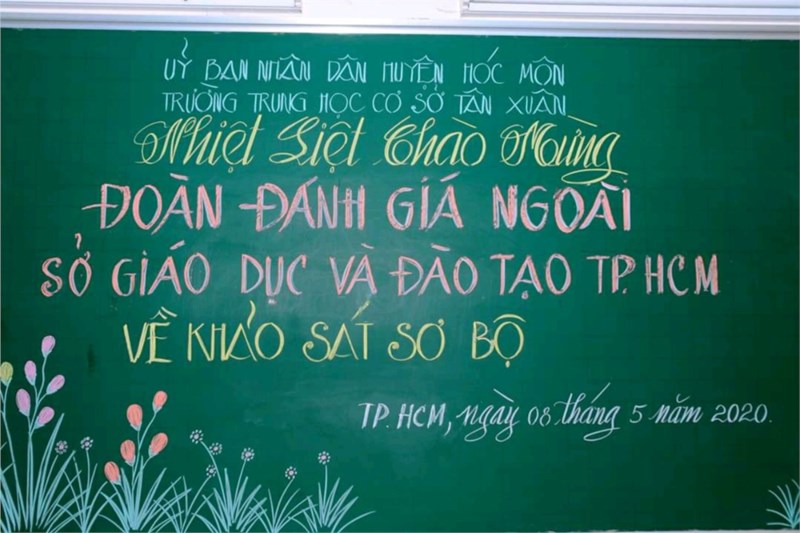 ỦY BAN NHÂN DÂN HUYỆN HÓC MÔN
TRƯỜNG TRUNG HỌC CƠ SỞ TÂN XUÂN
Nhiệt Liệt Chào Mừng
ĐOÀN ĐÁNH GIÁ NGOÀI
SỞ GIÁO DỤC VÀ ĐÀO TẠO TP. HCM
VỀ KHẢO SÁT SƠ BỘ
TP. HCM, ngày 08 tháng 5 năm 2020.